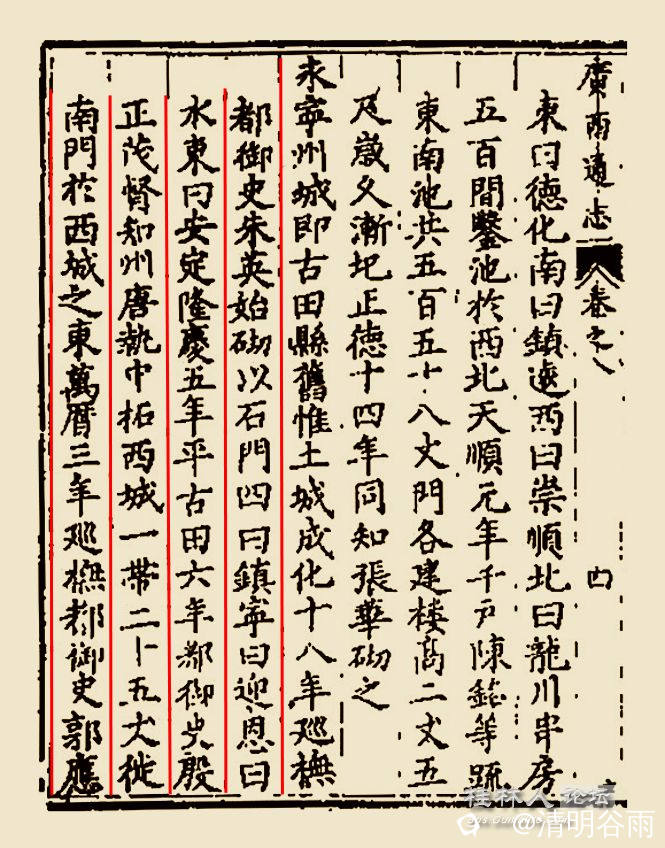 廣西通志 卷之八 四
東曰德化南曰鎮遠西曰崇順北曰龍川串房
五百間鑿池於西北天順元年千戶陳鋐等疏
東南池共五百五十八丈門各建楼高二丈五
尺歲久漸圮正德十四年同知張華砌之
永寧州城即古田縣舊惟土城成化十八年廵撫
都御史朱英始砌以石門四曰鎮寧曰迎恩曰
水東曰安定隆慶五年平古田六年都御史殷
正茂督知州唐執中拓西城一帶二十五丈徙
南門於西城之東萬曆三年廵撫都御史郭應
桂林人论坛
@清明谷雨